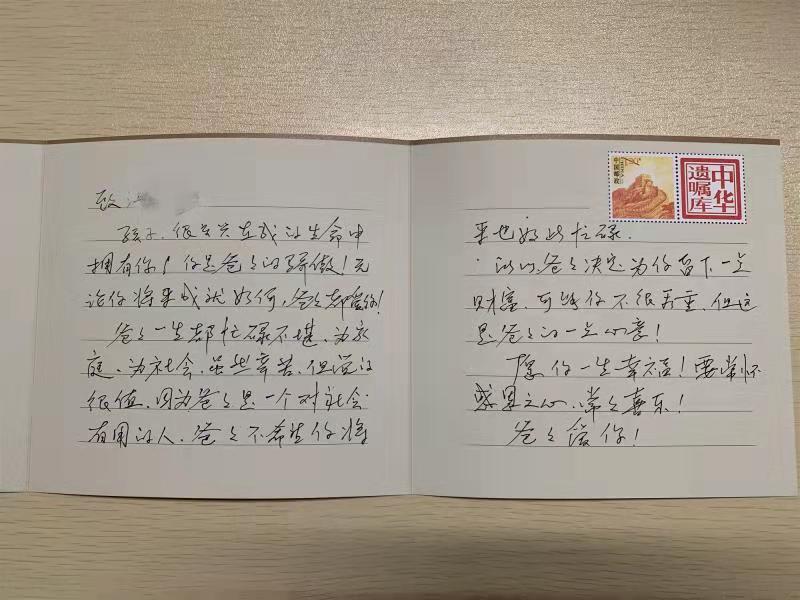 致
孩子，很高兴在我的生命中
拥有你！你是爸爸的骄傲！无
论你将来成就如何，爸爸都爱你！
爸爸一生都忙碌不堪，为家
庭、为社会，虽然辛苦，但觉的
很值，因为爸爸是一个对社会
有用的人，爸爸不希望你将
中国邮政
中华
遗嘱库
来也如此忙碌。
所以，爸爸决定为你留下一点
财富，可能你不很看重，但这
是爸爸的一点心意！
愿你一生幸福！要常怀
感恩之心，常常喜乐！
爸爸爱你！